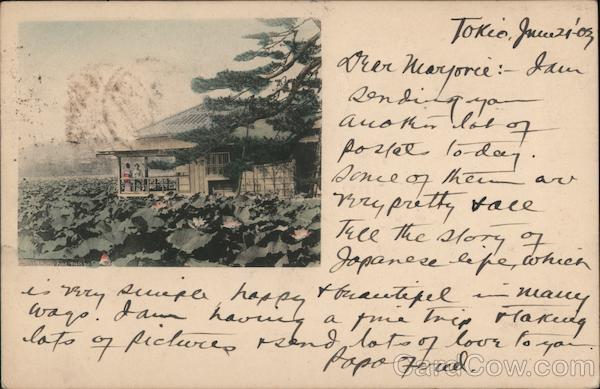 Tokio, June 21'03
Dear Marjorie:- I am
sending you
another lot of
postals to-day.
Some of them are
very pretty & all
tell the story of
Japanese life, which
is very simple, happy & beautiful in many
ways. I am having a fine trip & taking
lots of pictures & send lots of love to you.
Papa
CardCow.com